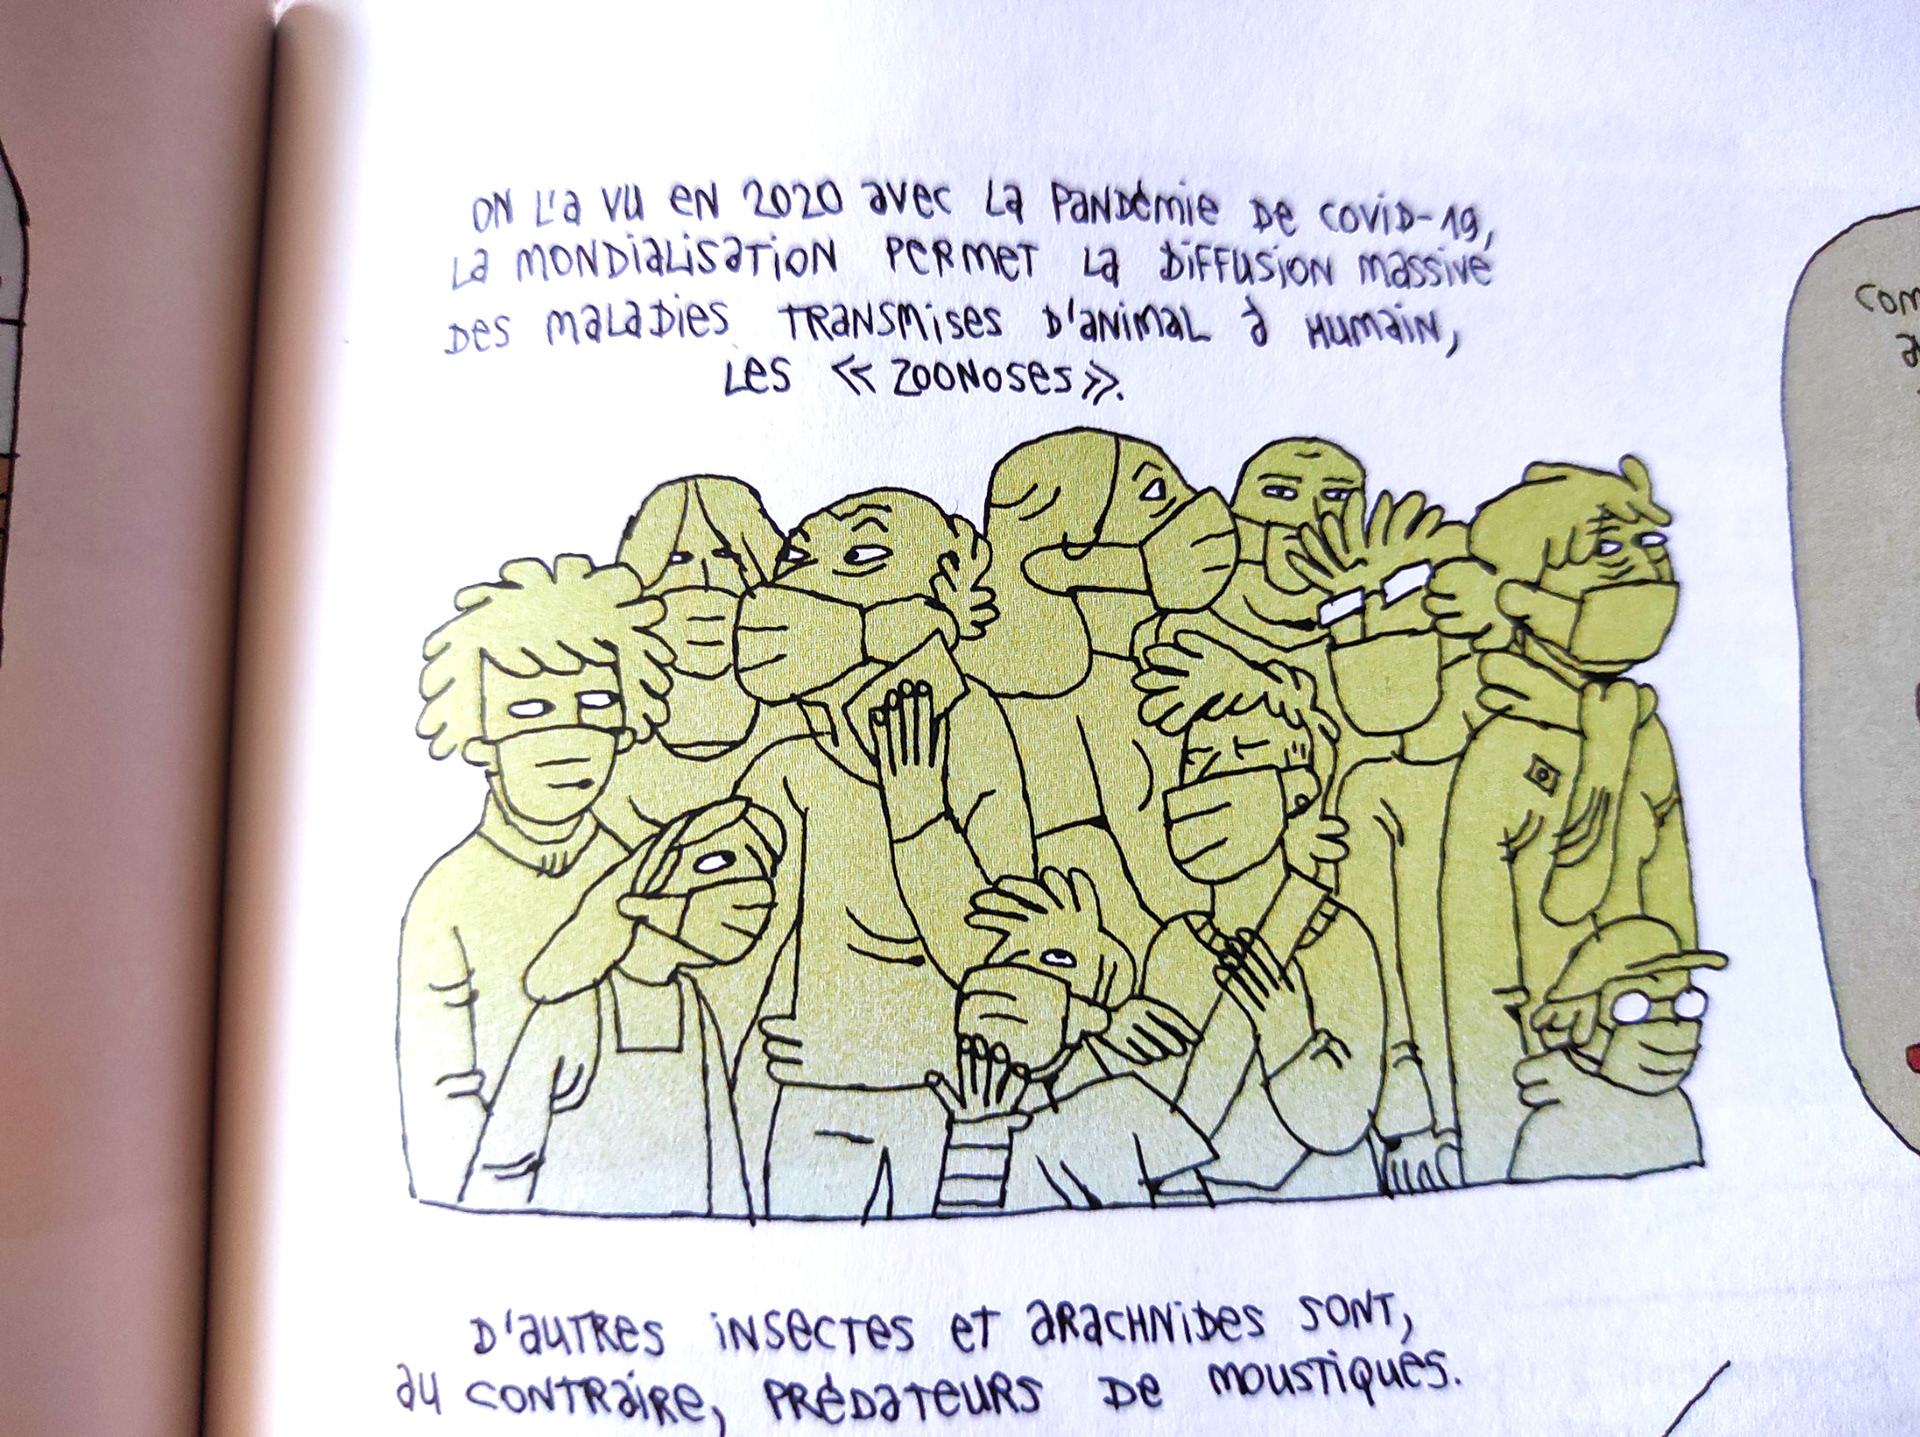 ON L'A VU EN 2020 AVEC LA PANDÉMIE DE COVID-19,
LA MONDIALISATION PERMET LA DIFFUSION MASSIVE
DES MALADIES TRANSMISES D'ANIMAL À HUMAIN,
LES « ZOONOSES ».
D'AUTRES INSECTES ET ARACHNIDES SONT,
AU CONTRAIRE, PRÉDATEURS DE MOUSTIQUES.